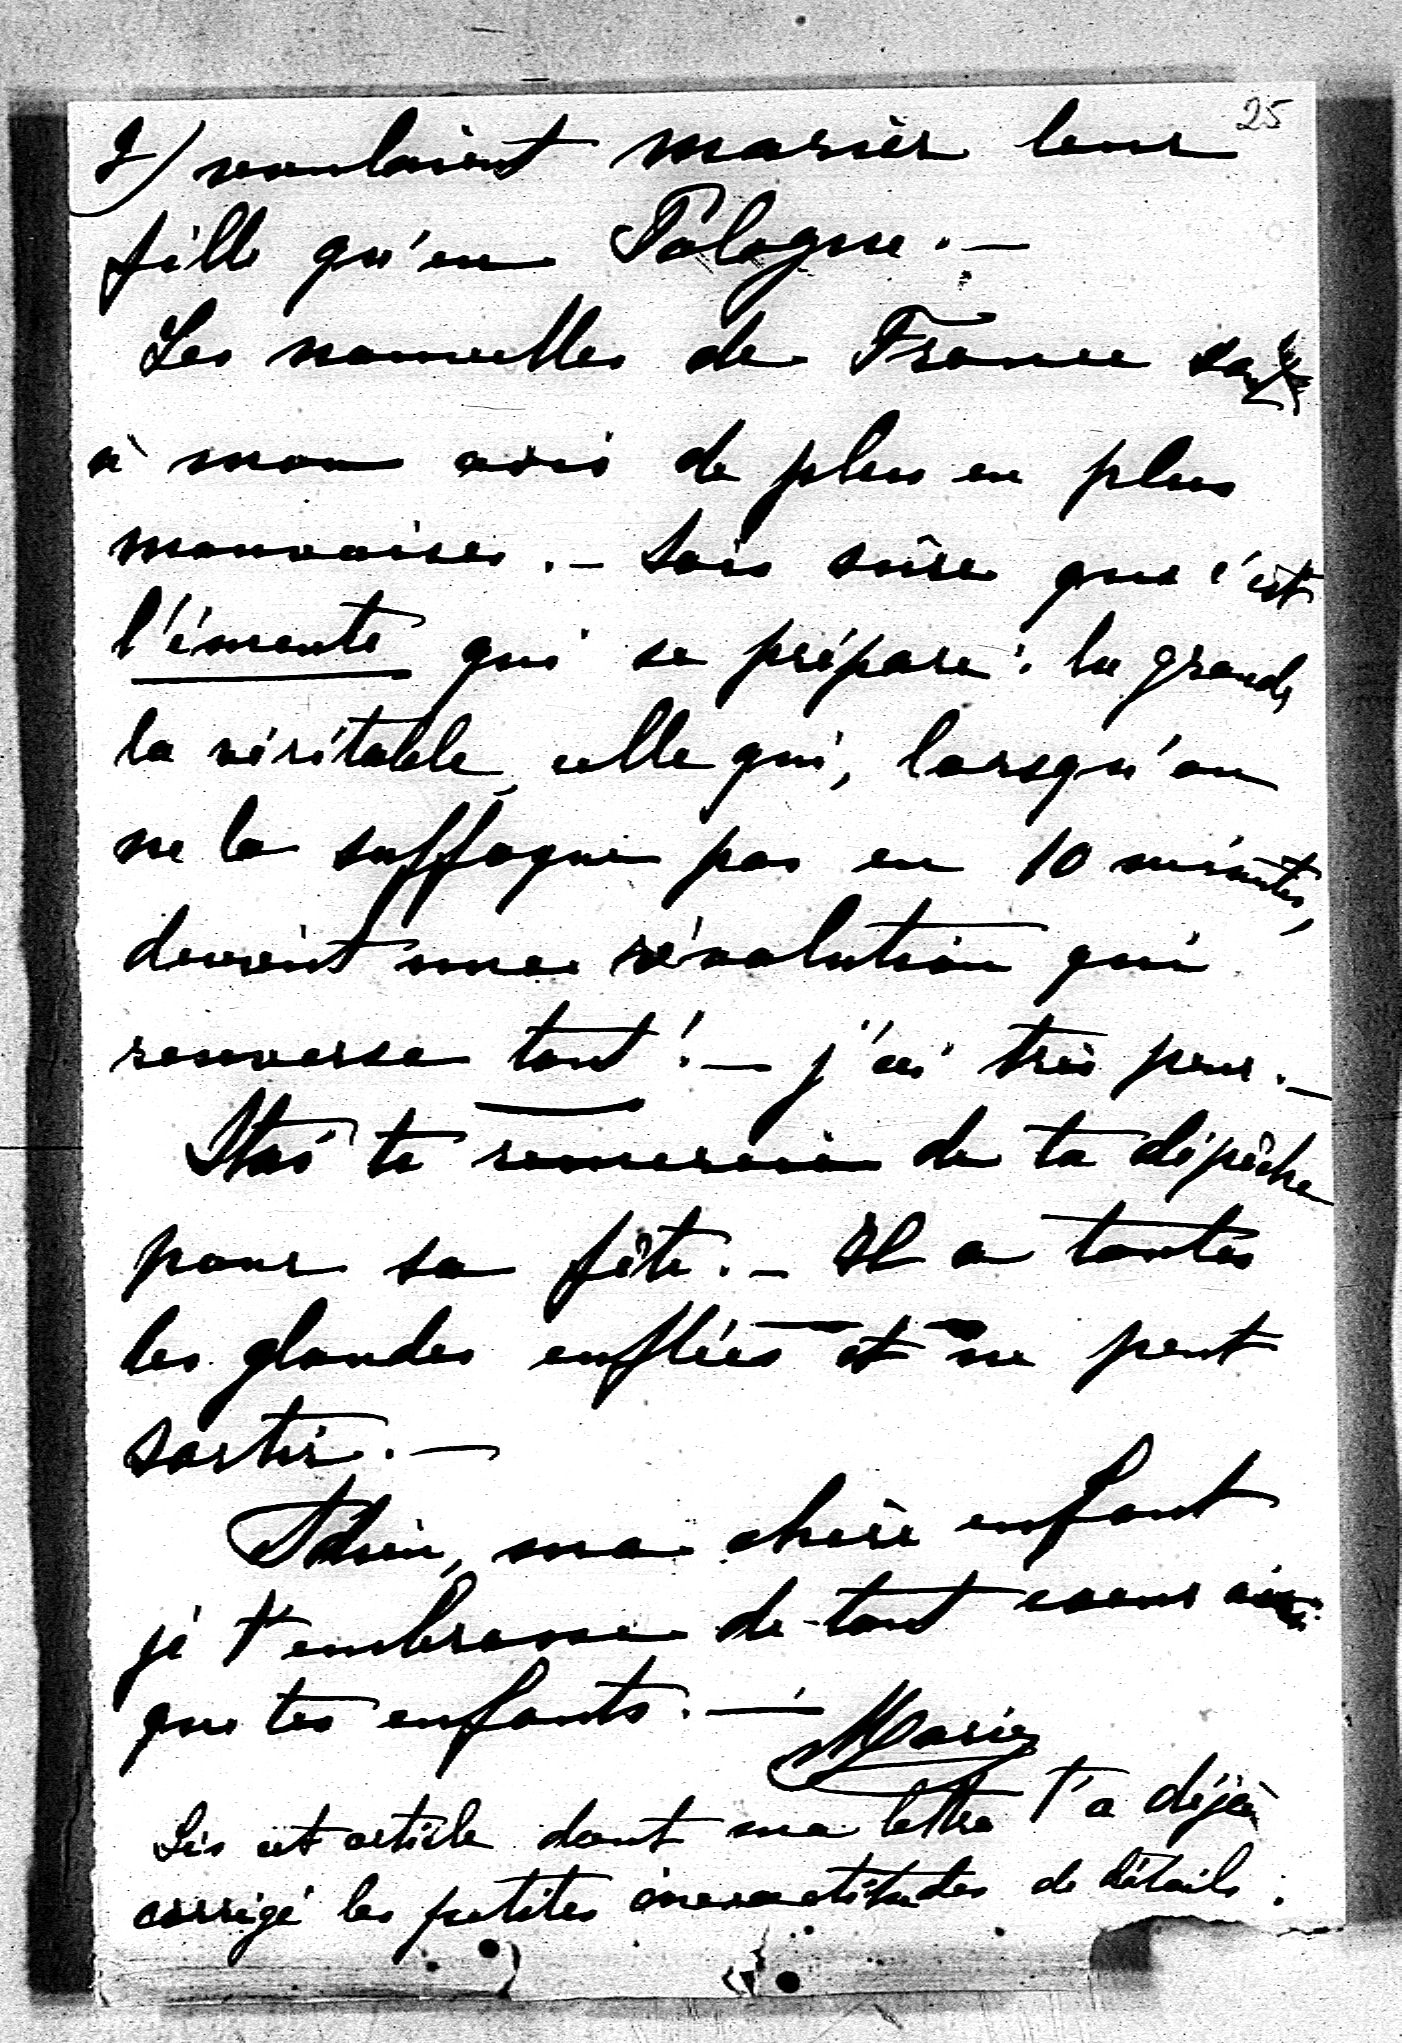 25
2) voulaient marier leur
fille qu'en Pologne. —
Les nouvelles de France sont
à mon avis de plus en plus
mauvaises. — Sois sûre que c'est
l'émeute qui se prépare : la grande
la véritable, celle qui, lorsqu'on
ne la suffoque pas en 10 minutes,
devient une révolution qui
renverse tout ! — j'ai très peur. —
Staś te remercie de ta dépêche
pour sa fête. — Il a toutes
les glandes enflées et ne peut
sortir. —
Adieu, ma chère enfant
je t'embrasse de tout coeur ainsi
que tes enfants. —
Marie
Lis cet article dont ma lettre t'a déjà
corrigé les petites inexactitudes de détails.